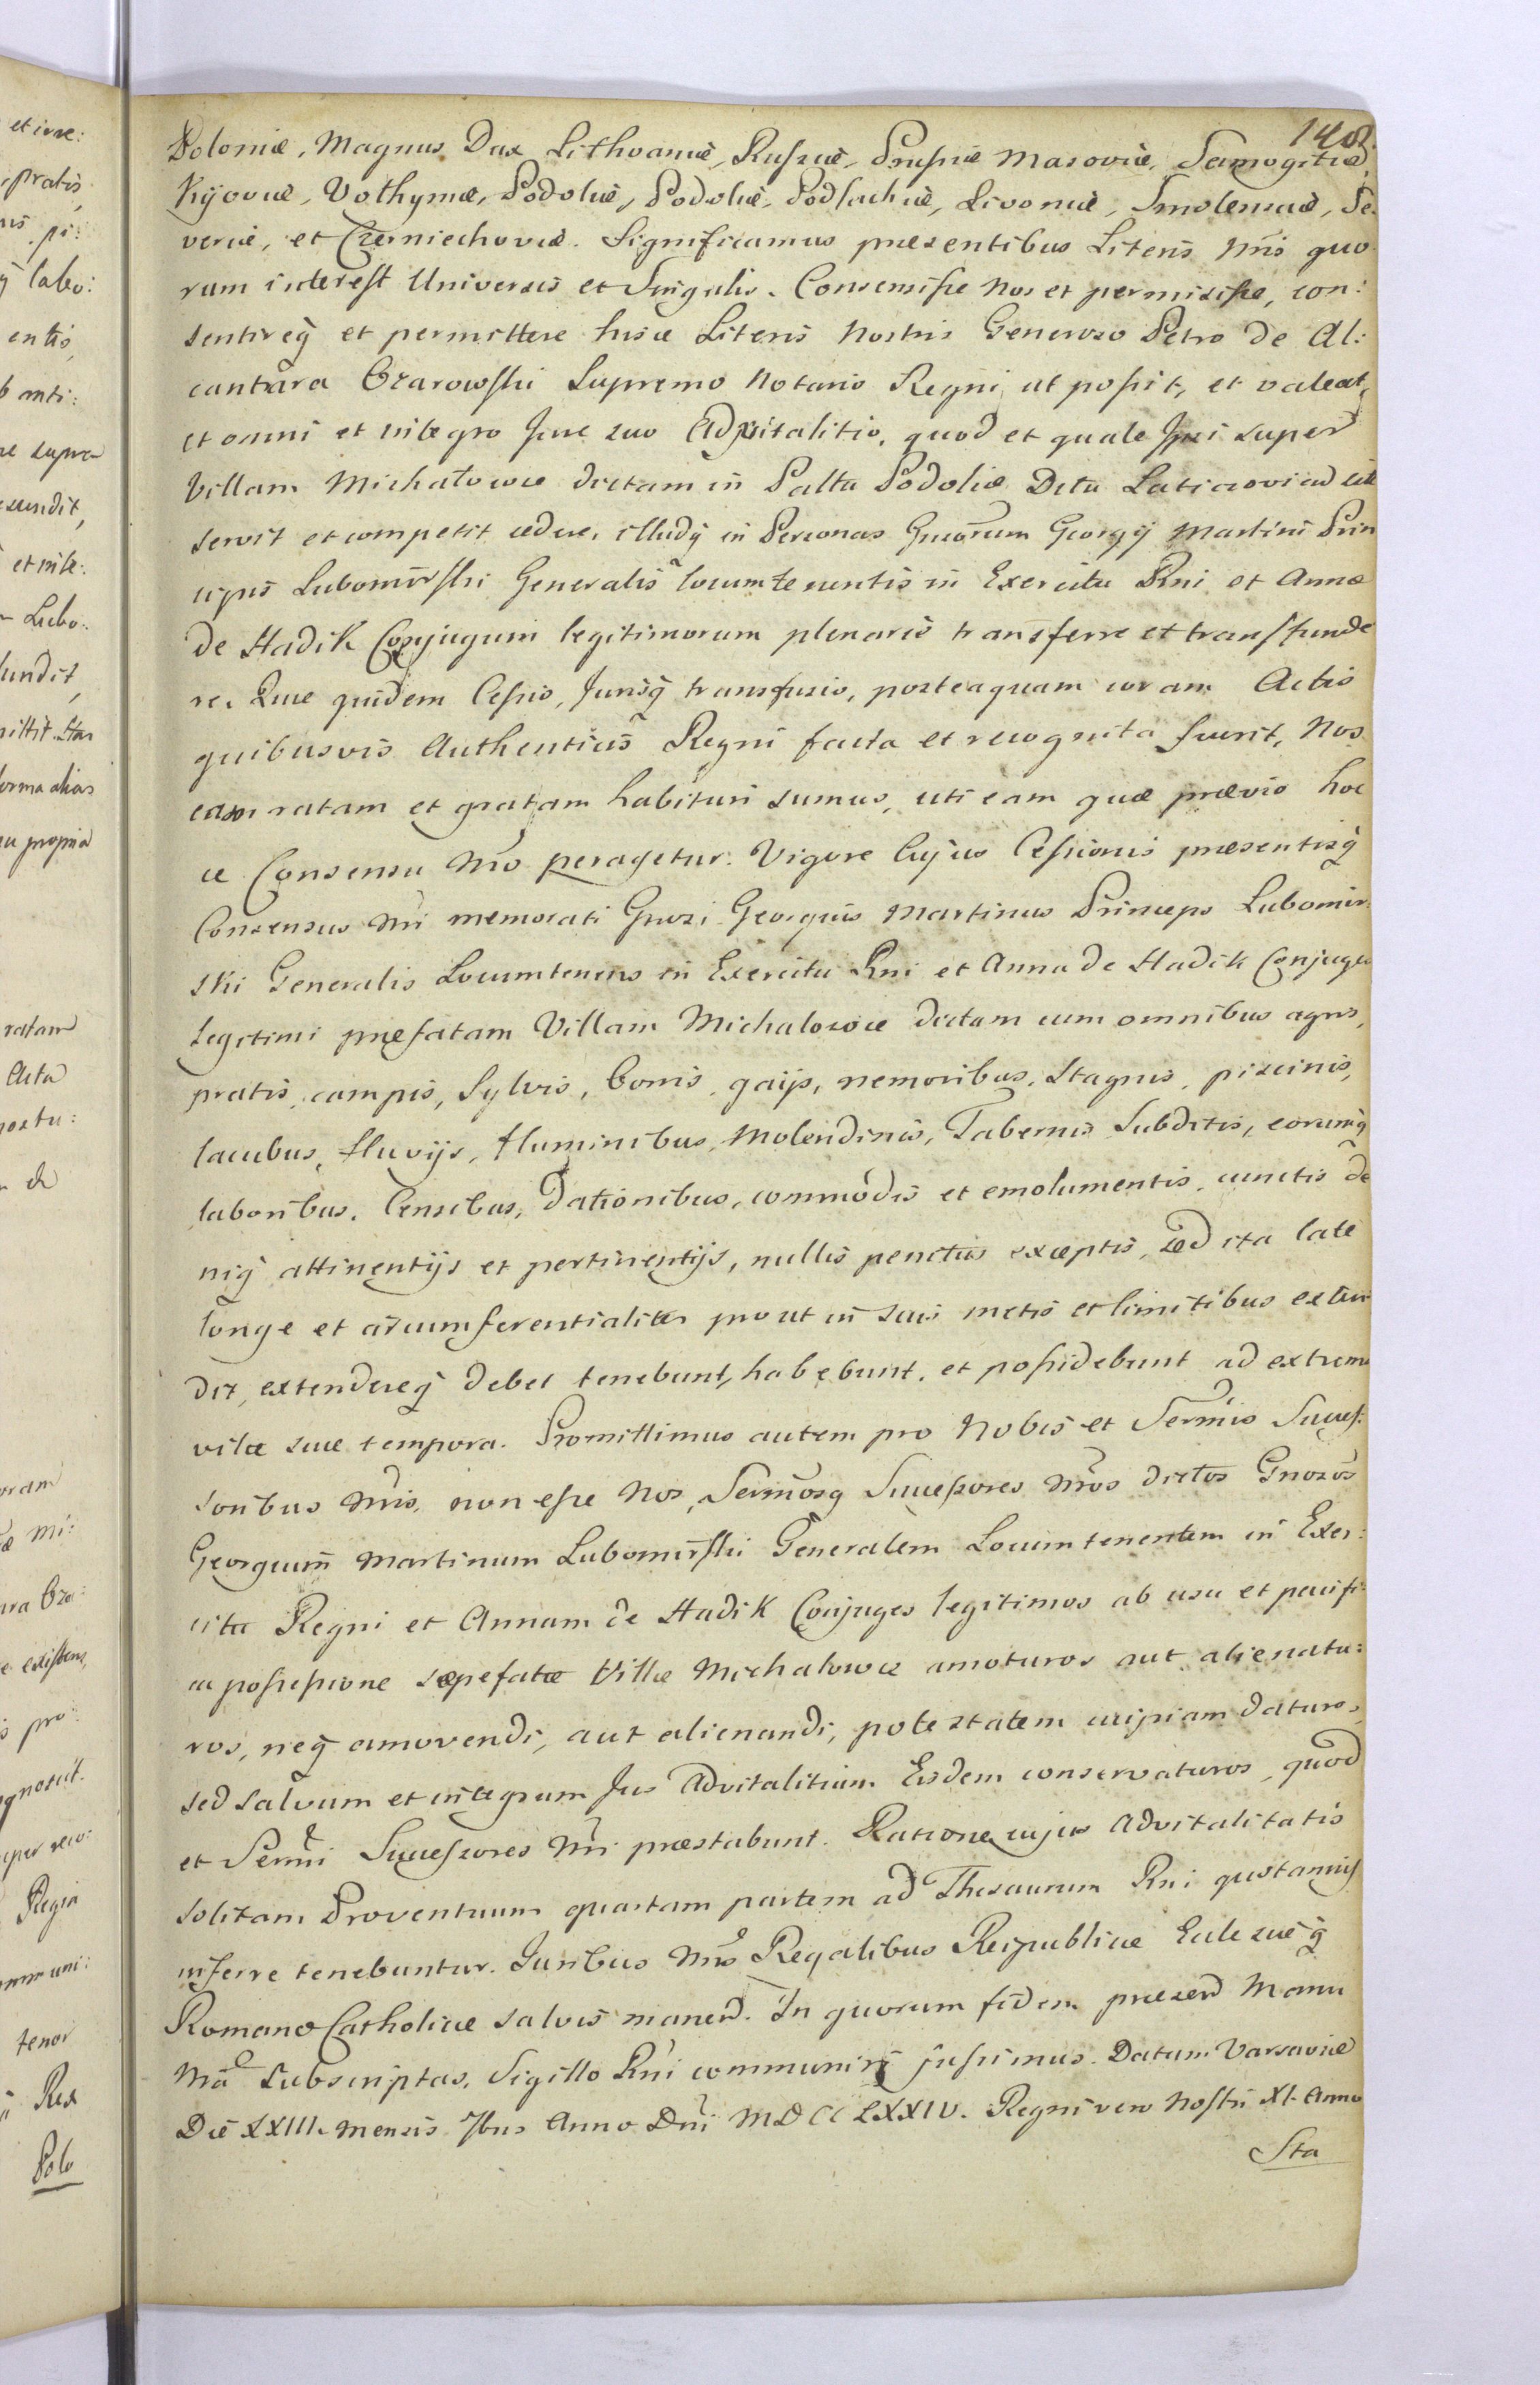 140.
Poloniæ, Magnus Dux Lithvaniæ, Rusziæ, Prusziæ Masoviæ, Samogitiæ,
Kijoviæ, Volhyniæ, Podoliæ, Podoliæ, Podlachiæ, Livoniæ, Smolensciæ, Se-
veriæ, et Czerniechoviæ. Significamus præsentibus Literis Nris quo
rum interest Universis et Singulis. Consensisse Nos et permisisse, con:
sentireq̃ et permittere hisce Literis Nostris Generoso Petro de Al:
cantara Ozarowski Supremo Notario Regni, ut possit, et valeat,
et omni et integro Jure suo Advitalitio, quod et quale Ipsi super
Villam Michałowce dictam in Palttu Podoliæ Dttu Laticzovien sitt
servit et competit cedere, illudq̃ in Personas Gnrorum Georgij Martini Prin
cipis Lubomirski Generalis locumtenentis in Exercitu Rni et Annæ
de Hadik Conjugum legitimorum plenarie transferre et transfunde
re. Quæ quidem Cessio, Jurisq̃ transfusio, posteaquam coram Actis
quibusvis Authenticis Regni facta et recognita fuerit, Nos
eam ratam et gratam habituri sumus, uti eam quæ prævio hoc
ce Consensu Nro peragetur. Vigore Cujus Cessionis præsentisq̃
Consensus Nri memorati Gnrosi Georgius Martinus Princeps Lubomir
ski Generalis Locumtenens in Exercitu Rni et Anna de Hadik Conjuges
legitimi præfatam Villam Michalowce dictam cum omnibus agris,
pratis, campis, Sylvis, bonis, gaijs, nemoribus, Stagnis, piscinis,
lacubus, fluvijs, fluminibus, Molendinis, Tabernis Subditis, eorumq̃
laboribus, Censibus, Dationibus, commodis et emolumentis, cunctis de
niq̃ attinentijs et pertinentijs, nullis penitus exceptis, sed ita late
longe et circumferentialiter prout in suis metis et limitibus exten
dit, extendereq̃ debet tenebunt, habebunt, et possidebunt ad extrema
vitæ suæ tempora. Promittimus autem pro Nobis et Sermis Succes:
soribus Nris, non esse Nos, Sermosq̃ Successores Nros dictos Gnrosos
Georgium Martinum Lubomirski Generalem Locumtenentem in Exer:
citu Regni et Annam de Hadik Conjuges legitimos ab usu et pacifi:
ca possessione sæpefatæ Villæ Michalowce amoturos aut alienatu:
ros, neq̃ amovendi, aut alienandi, potestatem cuipiam daturos,
sed salvum et integrum Jus Advitalitium Eisdem conservaturos, quod
et Sermi Successores Nri præstabunt. Ratione cujus Advitalitatis
solitam Proventuum quartam partem ad Thesaurum Rni quotannis
inferre tenebuntur. Juribus Nris Regalibus Reipublicæ Eclesiæq̃
Romano Catholicæ salvis manend. In quorum fidem præsend Manu
Nra Subscriptas, Sigillo Rni communiri jussimus. Datum Varsaviæ
Die XXIII. Mensis 7bris Anno Dni MDCCLXXIV. Regni vero Nostri XI. Anno
Sta